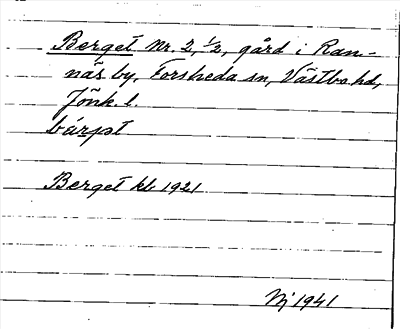 Berget Nr. 2, 1/2, gård i Ran-
näs by, Forsheda sn, Västbo hd,
Jönk. l.
bárjət
Berget kb 1921
Nj 1941